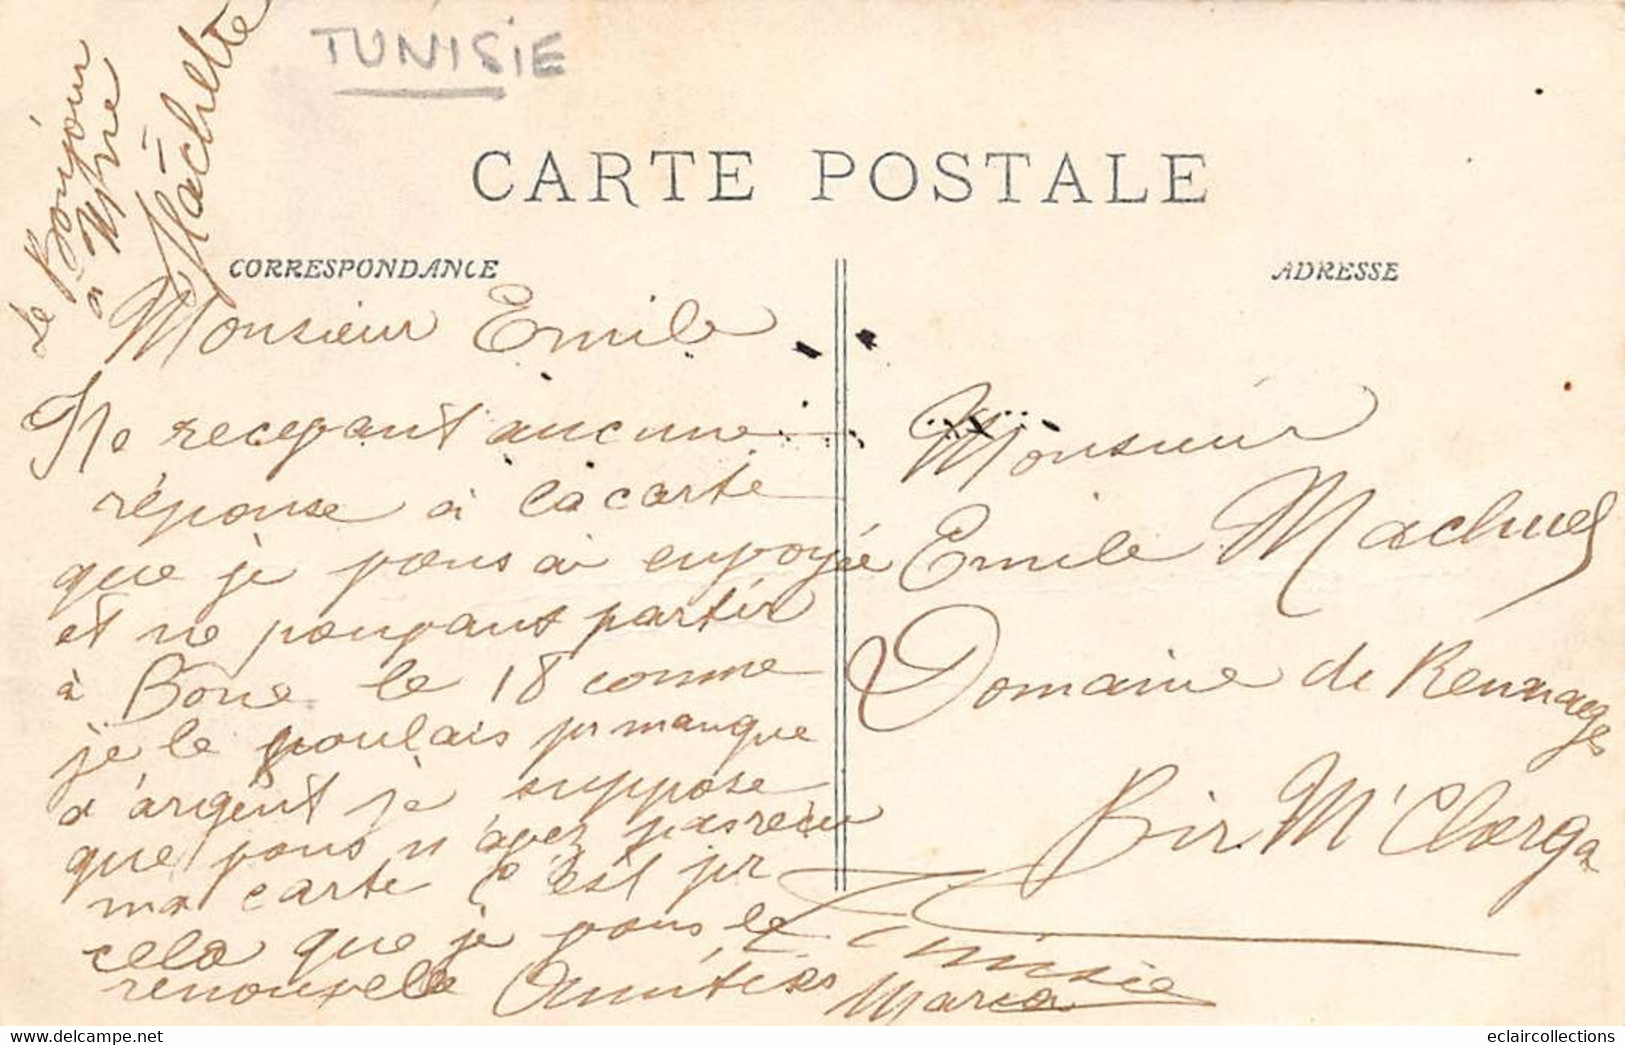 TUNISIE
CARTE POSTALE
CORRESPONDANCE
ADRESSE
Le Bonjour
à Mme
Machelte
Monsieur Emile
Ne recevant aucune
réponse à la carte
que je vous ai envoyée
et ne pouvant partir
à Bone le 18 comme
je le voulais pr manque
d'argent je suppose
que vous n'avez pas reçu
ma carte c'est pr
cela que je vous le
renouvelle Amitiés
Maria
Monsieur
Emile Machuel
Domaine de
Bir M'Clarga
Tunisie
eclaircollections